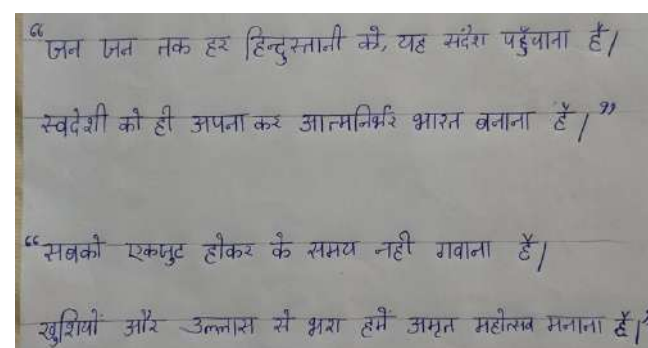 “जन जन तक हर हिन्दुस्तानी को, यह संदेश पहुँचाना है।
स्वदेशी को ही अपना कर आत्मनिर्भर भारत बनाना है।”
“सबको एकजुट होकर के समय नही गवाना है।
खुशियों और उल्लास से भरा हमें अमृत महोत्सव मनाना है।”